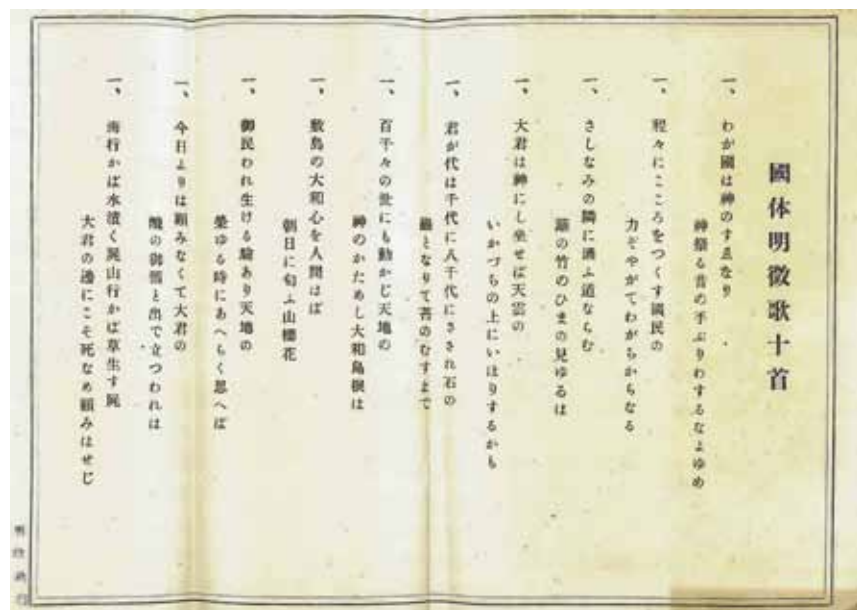 國体明徴歌十首
一、わが國は神のすゑなり
神祭る昔の手ぶりわするなよゆめ
一、程々にこころをつくす國民の
力ぞやがてわがちからなる
一、さしなみの隣に通ふ道ならむ
籬の竹のひまの見ゆるは
一、大君は神にし坐せば天雲の
いかづちの上にいほりするかも
一、君が代は千代に八千代にさざれ石の
巌となりて苔のむすまで
一、百千々の世にも動かじ天地の
神のかためし大和島根は
一、敷島の大和心を人問はば
朝日に匂ふ山櫻花
一、御民われ生ける驗あり天地の
榮ゆる時にあへらく思へば
一、今日よりは顧みなくて大君の
醜の御楯と出で立つわれは
一、海行かば水漬く屍山行かば草生す屍
大君の邊にこそ死なめ顧みはせじ